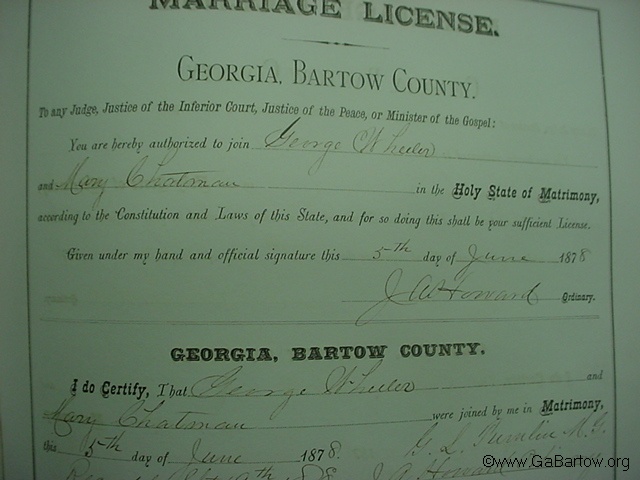 MARRIAGE LICENSE.
GEORGIA, BARTOW COUNTY.
To any Judge, Justice of the Inferior Court, Justice of the Peace, or Minister of the Gospel:
You are hereby authorized to join George Wheeler
and Mary Chatman in the Holy State of Matrimony,
according to the Constitution and Laws of this State, and for so doing this shall be your sufficient License.
Given under my hand and official signature this 5th day of June 1878
J A Howard Ordinary.
GEORGIA, BARTOW COUNTY.
I do Certify, That George Wheeler and
Mary Chatman were joined by me in Matrimony,
this 5th day of June 1878. G. L. M. G.
J A Howard
©www.GaBartow.org